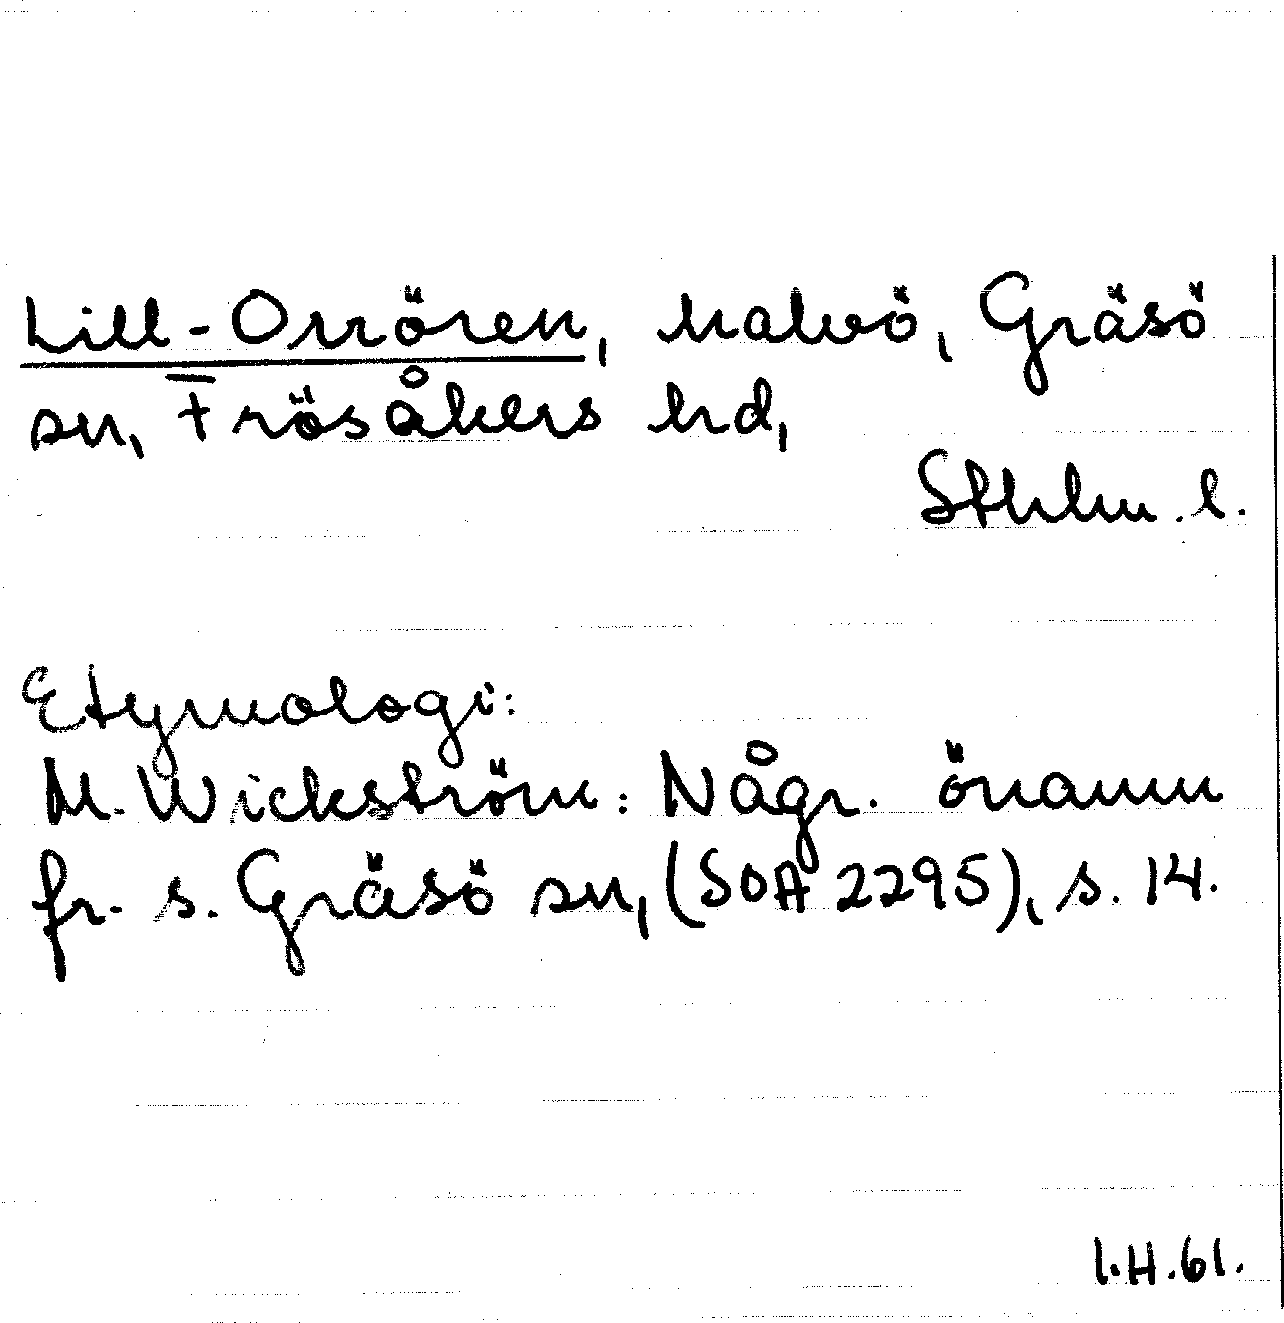 Lill-Orrören, halvö, Gräsö
sn, Frösåkers hd,
Sthlm. l.
Etymologi:
M. Wickström: Någr. önamn
fr. s. Gräsö sn, (SOA 2295), s. 14.
I.H.61.